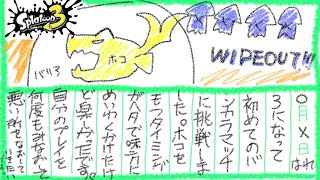 Splatoon 3
バリ3
ホコ
WIPEOUT!!!
〇月×日 はれ
3になって
初めてのバ
ンカラマッチ
に挑戦しま
した。ホコを
もつタイミングが
ガバガバで味方に
めいわくかけたけ
ど楽しかったです。
自分のプレイを
何度もみなおして
悪い所をなおして
いきたい